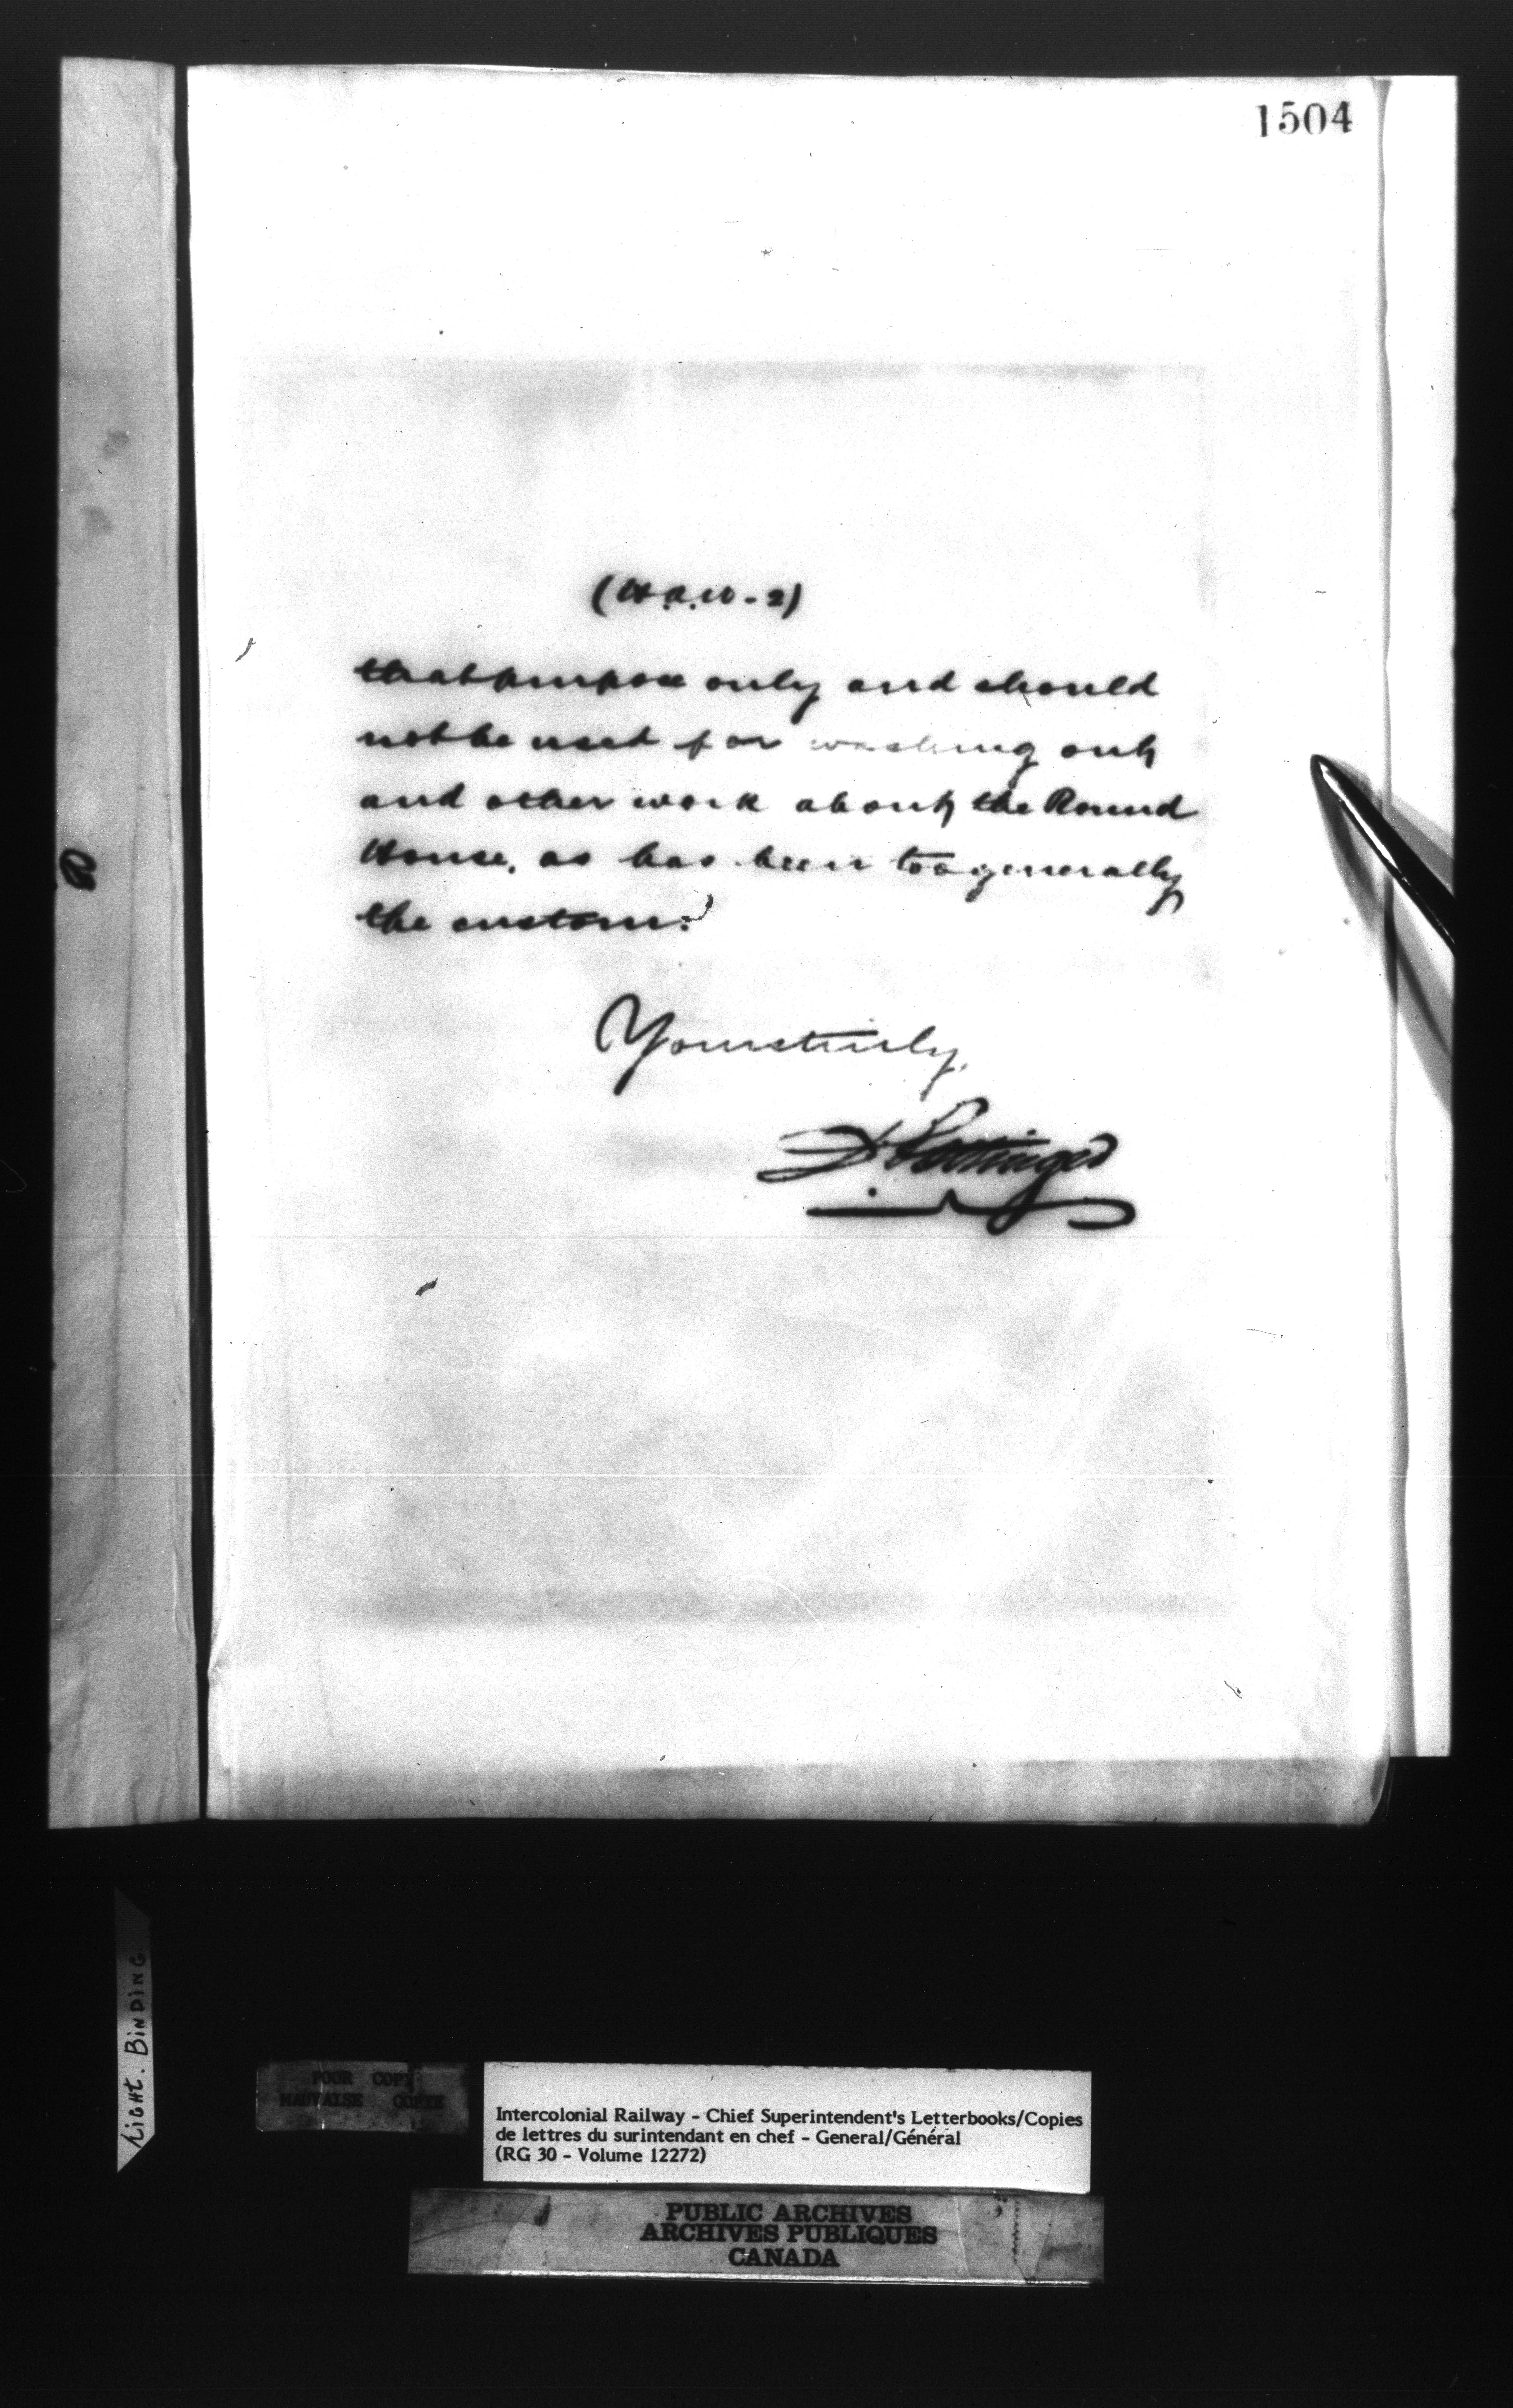 1504
(H.A.W-2)
that purpose only and should
not be used for washing out
and other work about the Round
House, as has been too generally
the custom.
Yours truly,
D. Pottinger
LIGHT. BINDING
POOR COPY
MAUVAISE COPIE
Intercolonial Railway - Chief Superintendent's Letterbooks/Copies
de lettres du surintendant en chef - General/Général
(RG 30 - Volume 12272)
PUBLIC ARCHIVES
ARCHIVES PUBLIQUES
CANADA